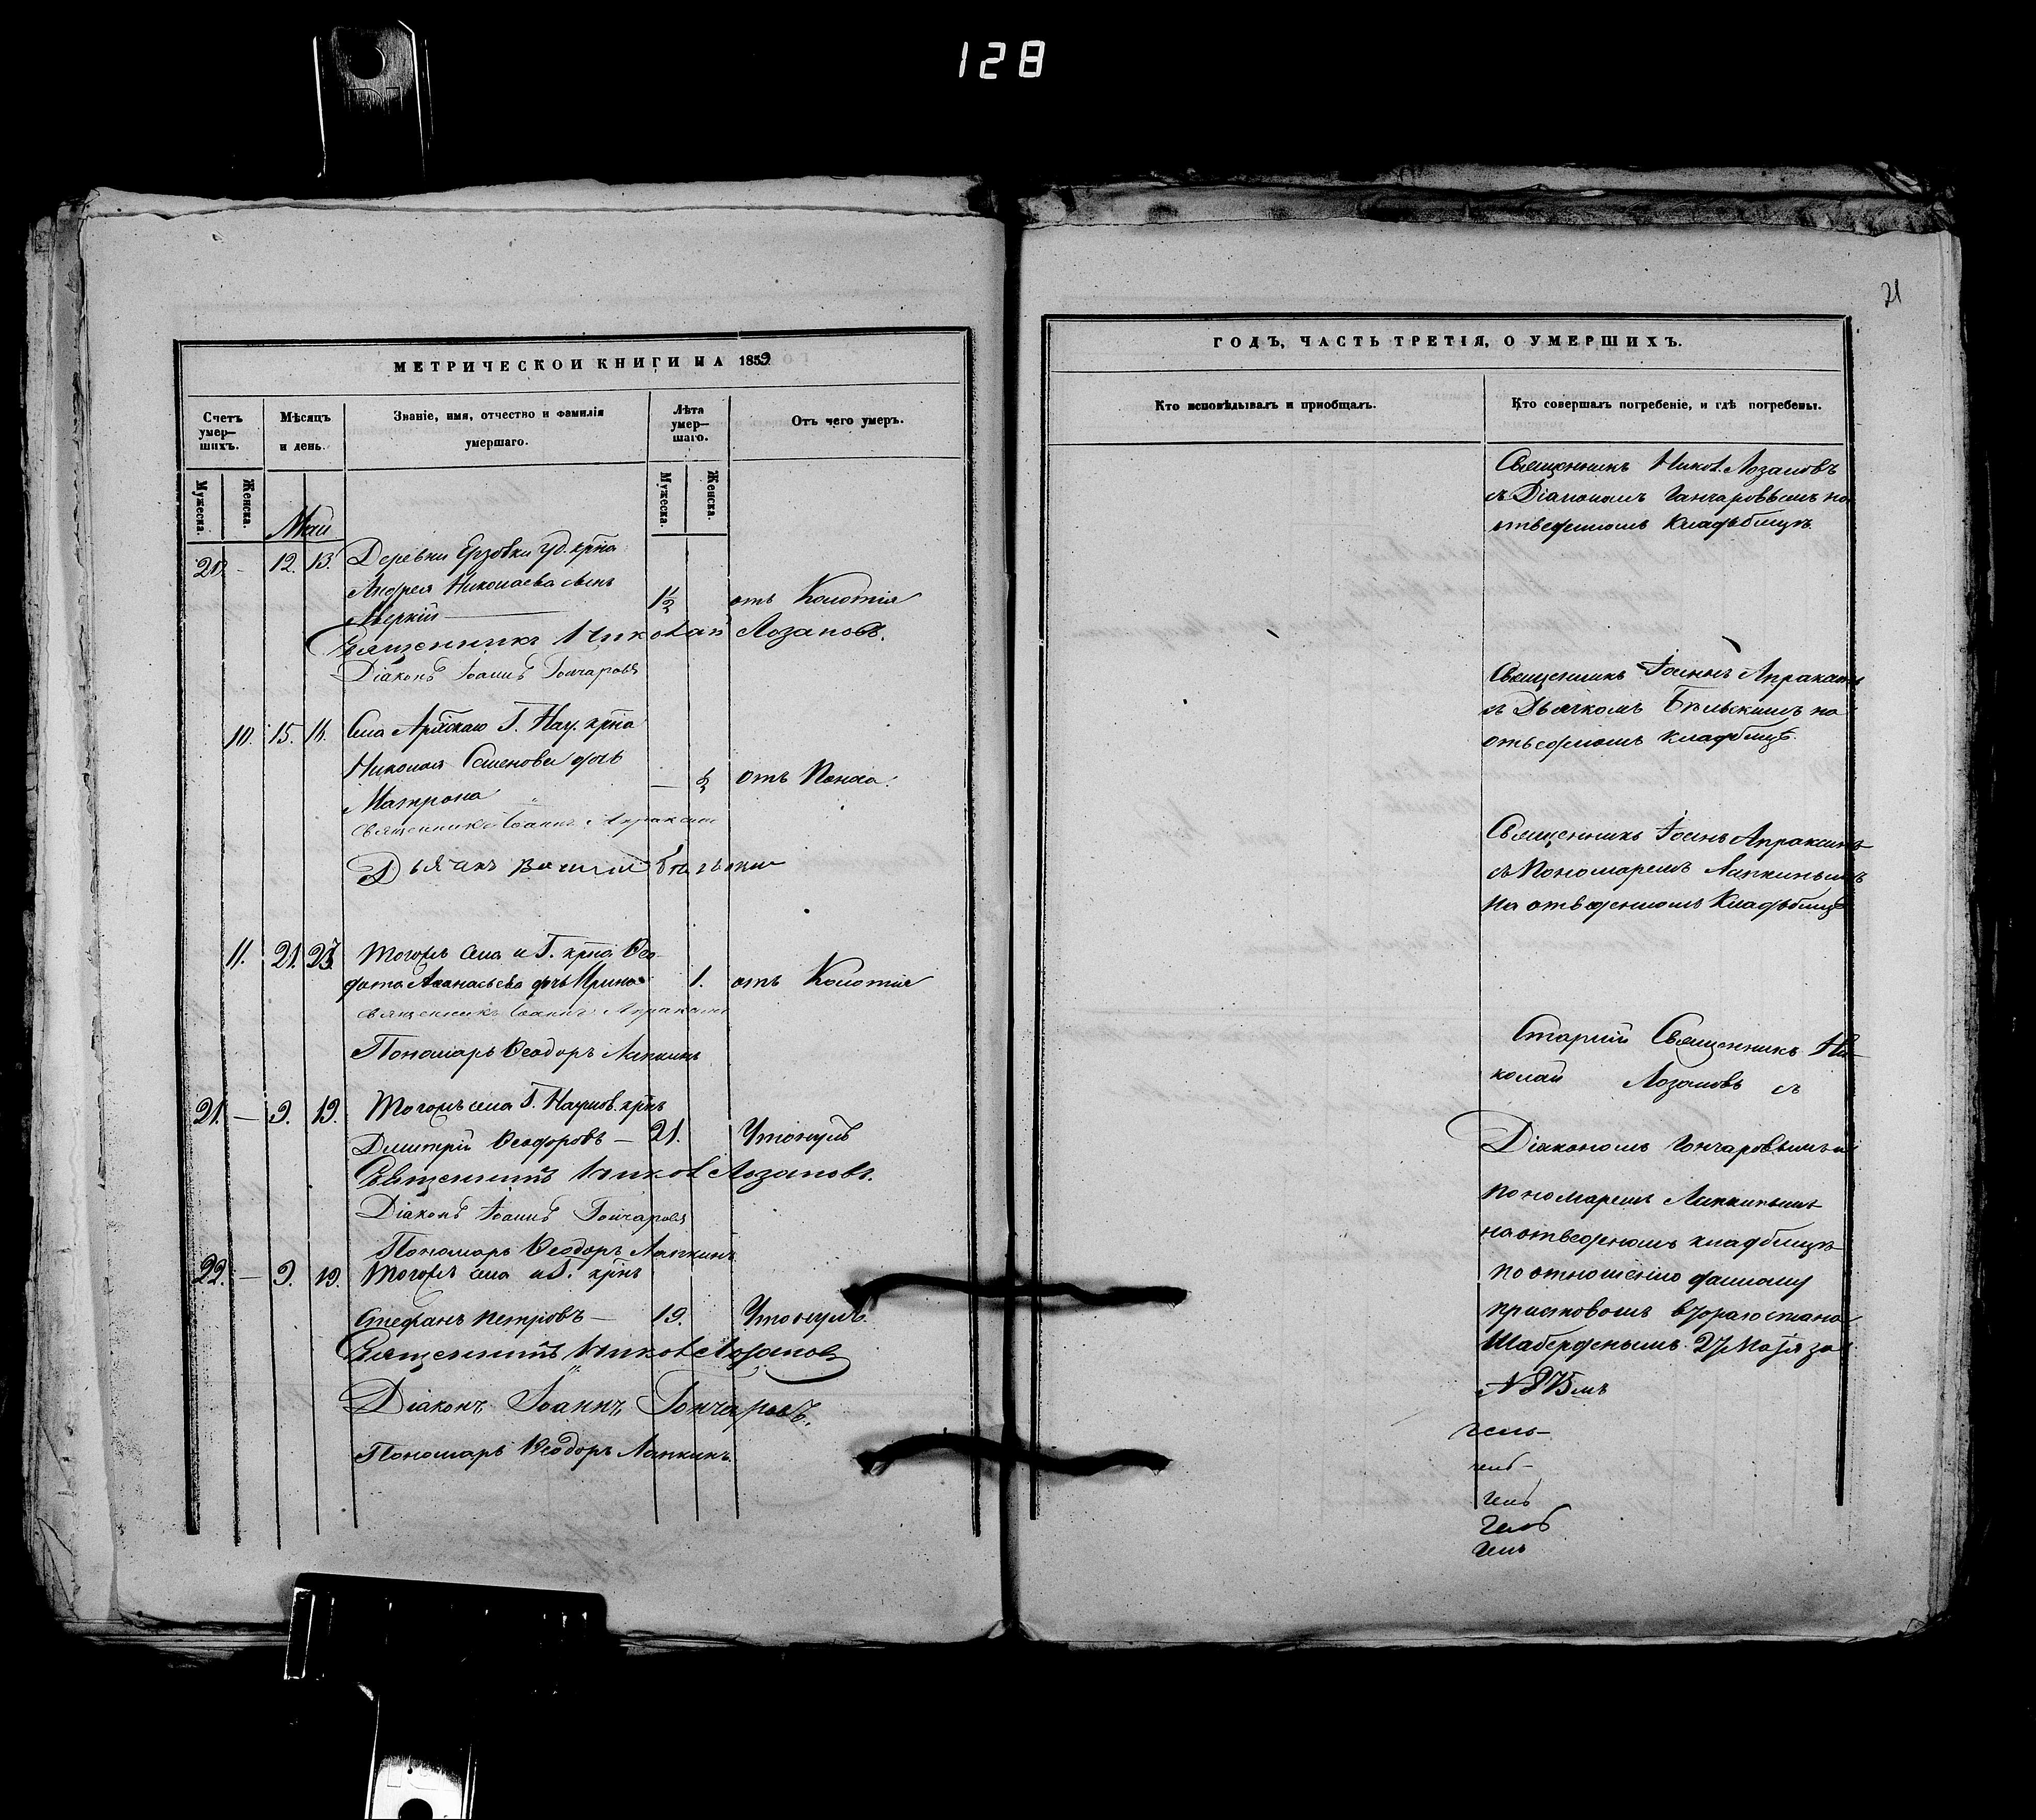 128
21
МЕТРИЧЕСКОЙ КНИГИ НА 1859
Счетъ умер-шихъ.
Мѣсяцъ и день.
Званіе, имя, отчество и фамилія умершаго.
Лѣта умер-шаго.
Отъ чего умеръ.
Мужеска.
Женска.
Мужеска.
Женска.
Май
20. – 12. 13. Деревни Ерзовки уд. крⷭ҇на
Андрея Николаева сынъ
Аверкій — 1½ отъ Колотія
Священникъ Николай Лозановъ.
Діаконъ Іоаннъ Гончаровъ
10. 15. 16. Села Г. Нау. крⷭ҇на
Николая Семенова дочь
Матрона — ½ отъ Поноса.
Священникъ Іоаннъ Апраксинъ
Дьячекъ Василій Бѣльскій
11. 21. 23. Тогожъ села и Г. крⷭ҇на Ѳео-
дота Аѳанасьева дочь Ирина 1. отъ Колотія
Священникъ Іоаннъ Апраксинъ
Пономарь Ѳеодоръ Лапкинъ
21. – 9. 19. Тогожъ села Г. Наумов. крⷭ҇нъ
Дмитрій Ѳеодоровъ — 21. Утонулъ
Священникъ Никол Лозановъ.
Діаконъ Іоаннъ Гончаровъ
Пономарь Ѳеодоръ Лапкинъ
22. – 9. 19. Тогожъ села и Г. крⷭ҇нъ
Стефанъ Петровъ — 19. Утонулъ.
Священникъ Никол Лозановъ
Діаконъ Іоаннъ Гончаровъ.
Пономарь Ѳеодоръ Лапкинъ.
ГОДЪ, ЧАСТЬ ТРЕТІЯ, О УМЕРШИХЪ.
Кто исповѣдывалъ и пріобщалъ.
Кто совершалъ погребеніе, и гдѣ погребены.
Священникъ Никол. Лозановъ
съ Діакономъ Гончаровымъ на
отведенномъ кладбищѣ
Священникъ Іоаннъ Апраксинъ
съ Дьячкомъ Бѣльскимъ на
отведенномъ кладбищѣ.
Священникъ Іоаннъ Апраксинъ
съ Пономаремъ Лапкинымъ
на отведенномъ кладбищѣ
Старшій Священникъ Ни-
колай Лозановъ съ
Діакономъ Гончаровымъ и
пономаремъ Лапкинымъ
на отведенномъ кладбищѣ
по отношенію данному
приставомъ втораго стана
27 Маія за
№ 875мъ